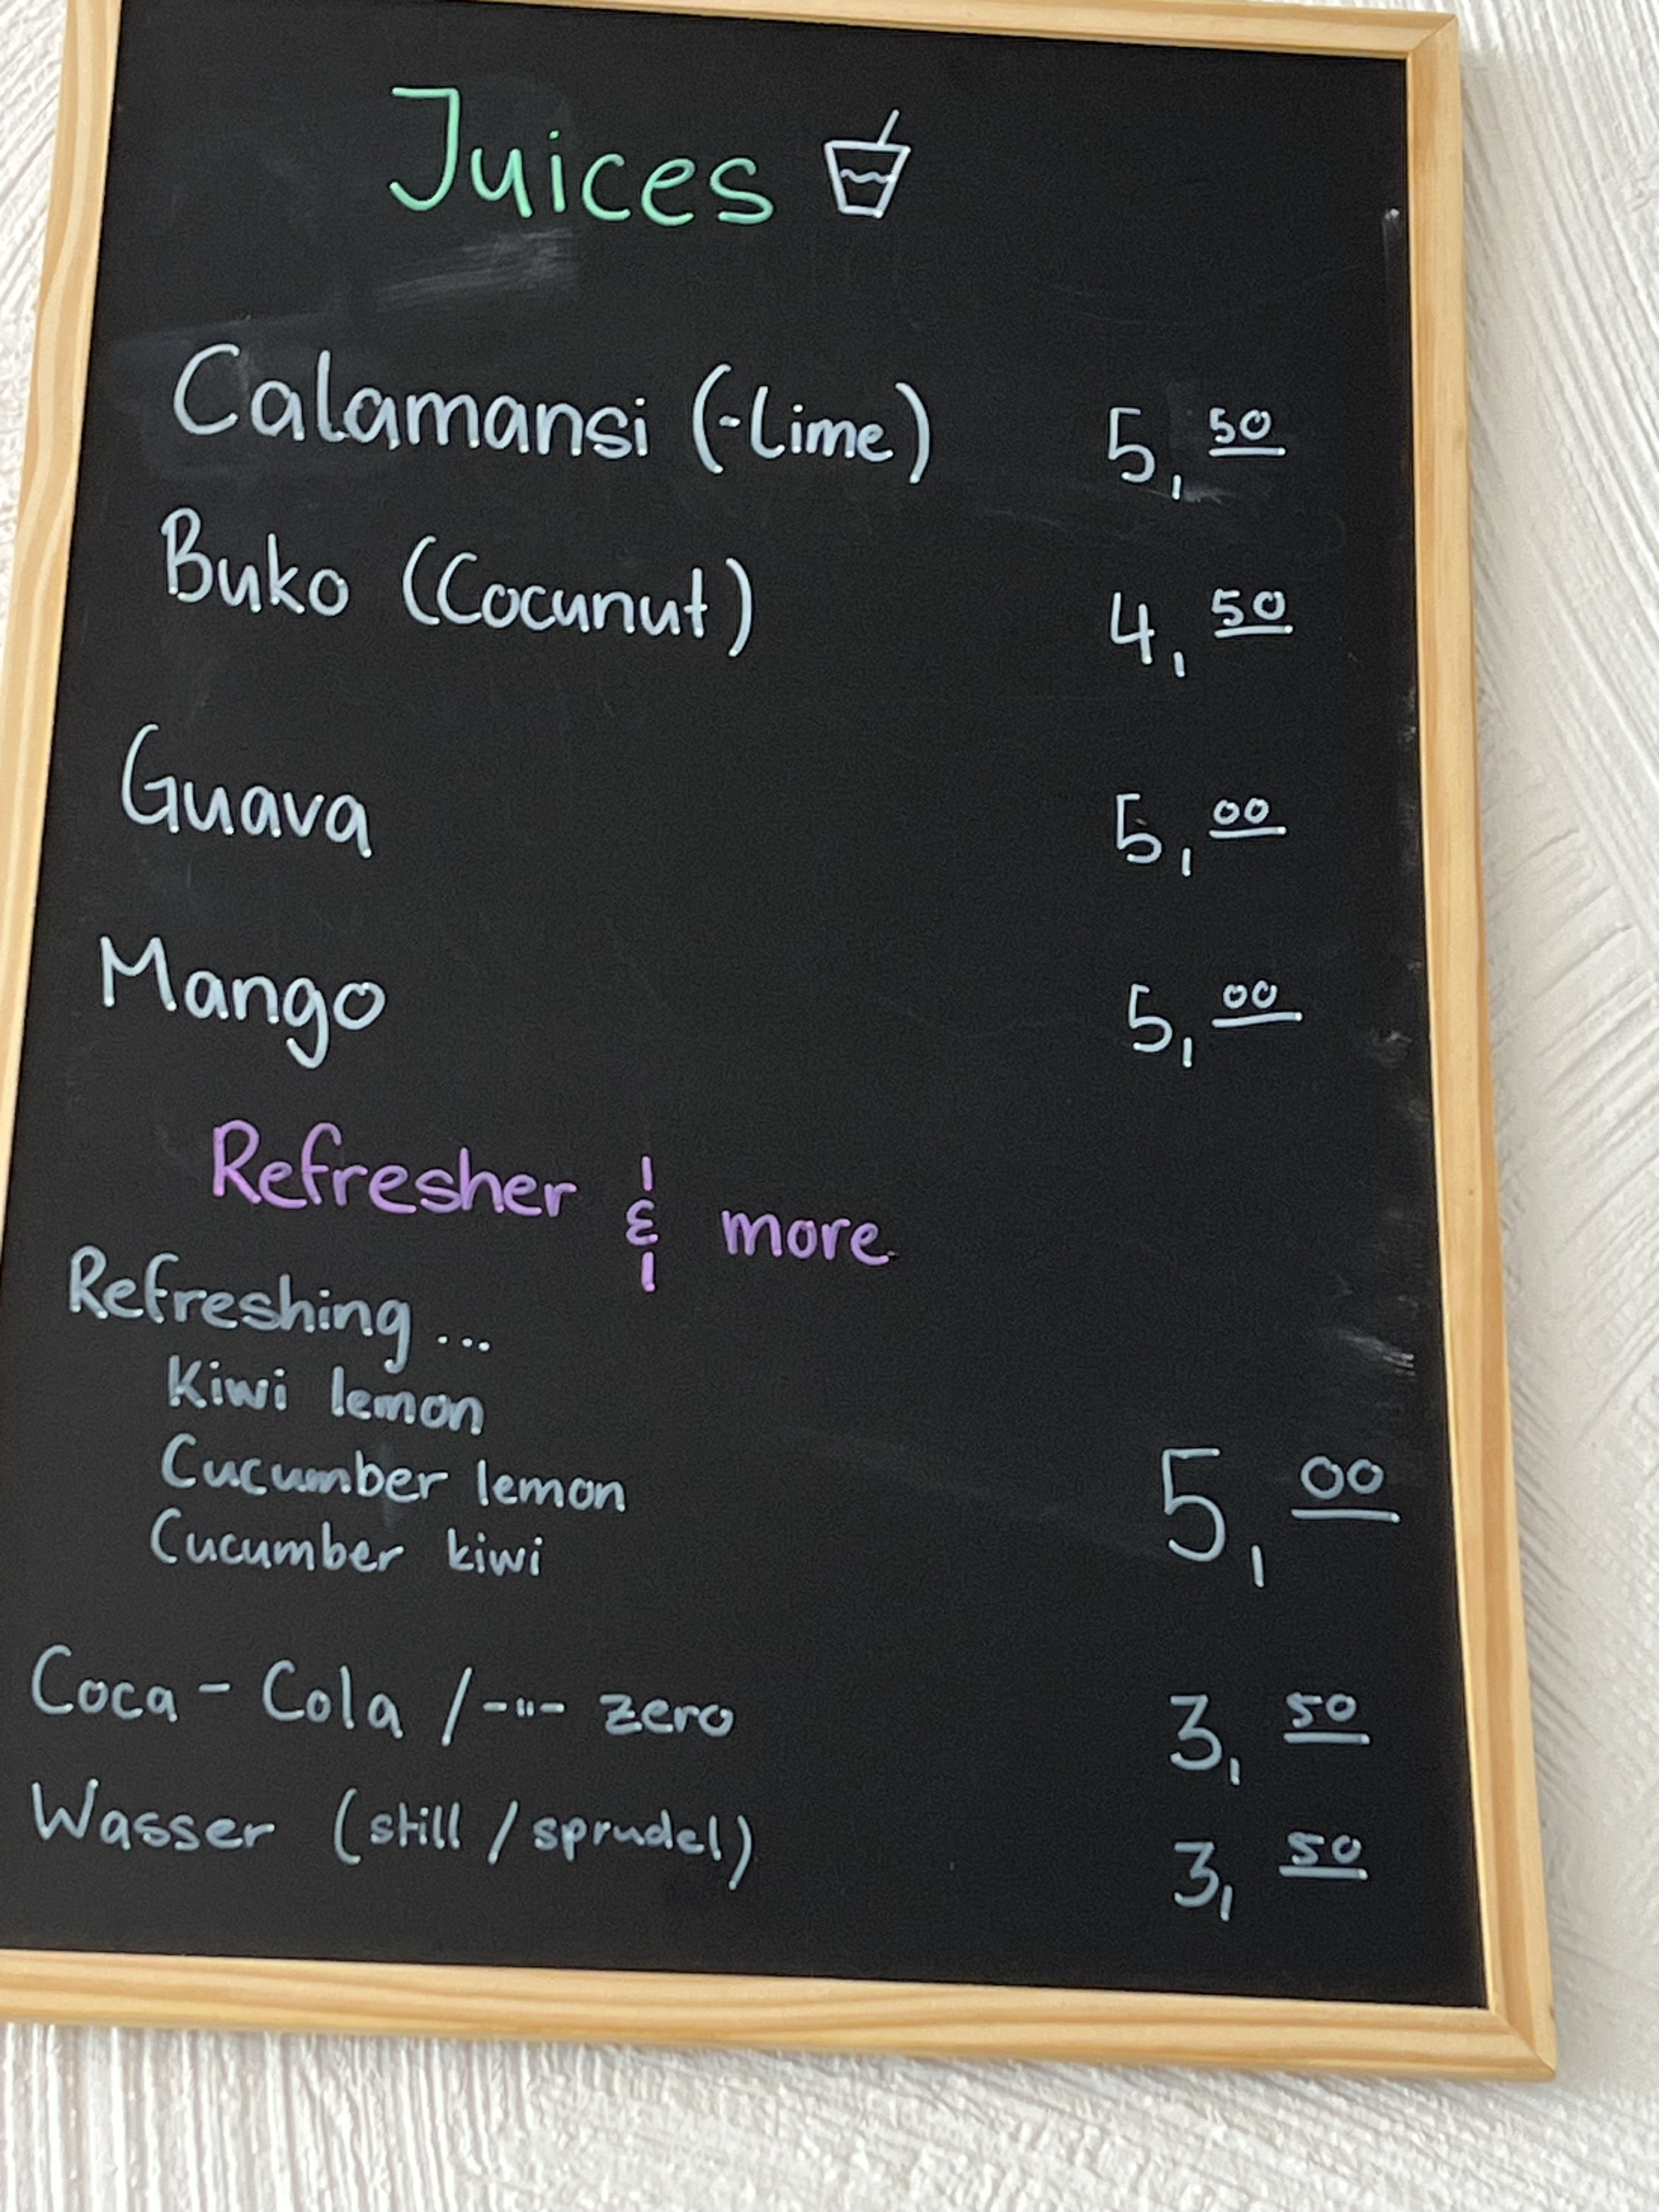 Juices
Calamansi (-Lime) 5,50
Buko (Cocunut) 4,50
Guava 5,00
Mango 5,00
Refresher & more
Refreshing ...
Kiwi lemon
Cucumber lemon 5,00
Cucumber kiwi
Coca-Cola / -"- zero 3,50
Wasser (still / sprudel) 3,50